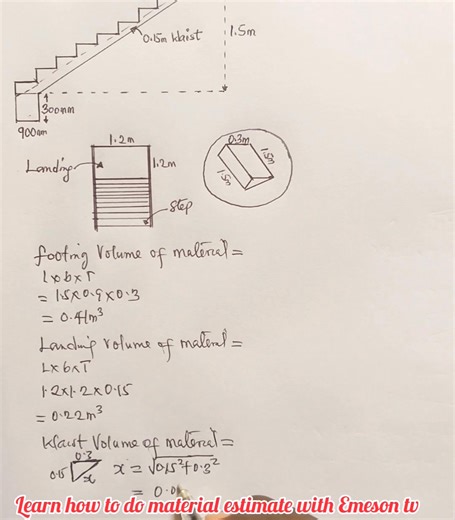 0.15m Waist
1.5m
300mm
900mm
1.2m
Landing
1.2m
Step
0.3m
1.5m
1.5m
footing Volume of material =
L x b x T
= 1.5 x 0.9 x 0.3
= 0.41m³
Landing Volume of material =
L x b x T
1.2 x 1.2 x 0.15
= 0.22m³
Waist Volume of material =
0.3
0.15
x
x = √0.15² + 0.3²
= 0.0
Learn how to do material estimate with Emeson tv